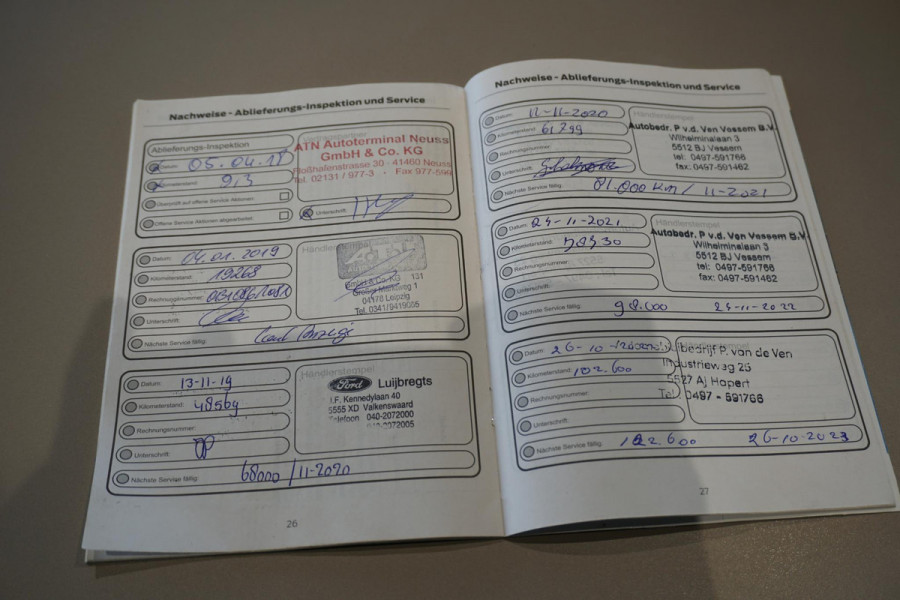 Nachweise - Ablieferungs-Inspektion und Service
Ablieferungs-Inspektion
Datum: 05.04.18
Kilometerstand: 9,3
Überprüft auf offene Service Aktionen:
Offene Service Aktionen abgearbeitet:
ATN Autoterminal Neuss
GmbH & Co. KG
Floßhafenstrasse 30 - 41460 Neuss
Tel. 02131 / 977-3 - Fax 977-599
Unterschrift:
Datum: 04.01.2019
Kilometerstand: 19268
Rechnungsnummer:
Unterschrift:
Nächste Service fällig:
Händlerstempel
GmbH & Co. KG 131
04178 Leipzig
Tel. 0341/9419065
Datum: 13-11-19
Kilometerstand: 48569
Rechnungsnummer:
Unterschrift:
Nächste Service fällig: 68000 / 11-2020
Händlerstempel
Ford Luijbregts
J.F. Kennedylaan 40
5555 XD Valkenswaard
Telefoon 040-2072000
040-2072005
26
Nachweise - Ablieferungs-Inspektion und Service
Datum: 11-11-2020
Kilometerstand: 61299
Rechnungsnummer:
Unterschrift:
Nächste Service fällig: 81.000 km / 11-2021
Händlerstempel
Autobedr. P v.d. Ven Vessem B.V.
Wilhelminalaan 3
5512 BJ Vessem
tel: 0497-591766
fax: 0497-591462
Datum: 24-11-2021
Kilometerstand:
Rechnungsnummer:
Unterschrift:
Nächste Service fällig: 98.000 24-11-2022
Händlerstempel
Autobedr. P v.d. Ven Vessem B.V.
Wilhelminalaan 3
5512 BJ Vessem
tel: 0497-591766
fax: 0497-591462
Datum: 26-10-
Kilometerstand: 102.600
Rechnungsnummer:
Unterschrift:
Nächste Service fällig: 122.600 26-10-2023
bedrijf P. van de Ven
Industrieweg 25
5527 AJ Hapert
Tel. 0497 - 591766
27